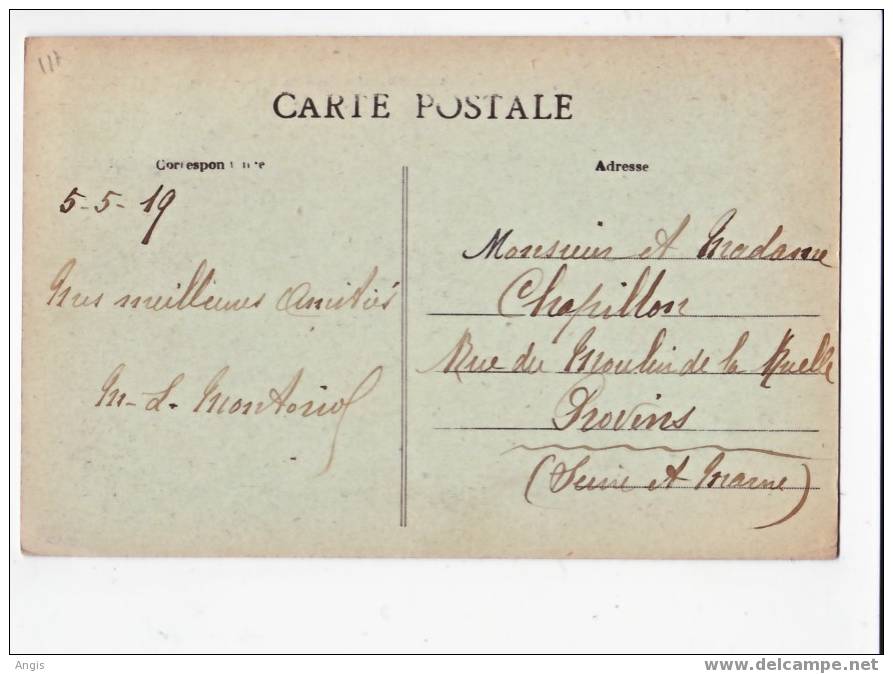 CARTE POSTALE
Correspondance
5-5-19
Mes meilleures amitiés
M-L. Montoriol
Adresse
Monsieur et Madame
Chapillon
Rue du Moulin de la Ruelle
Provins
(Seine et Marne)
Angis
www.delcampe.net